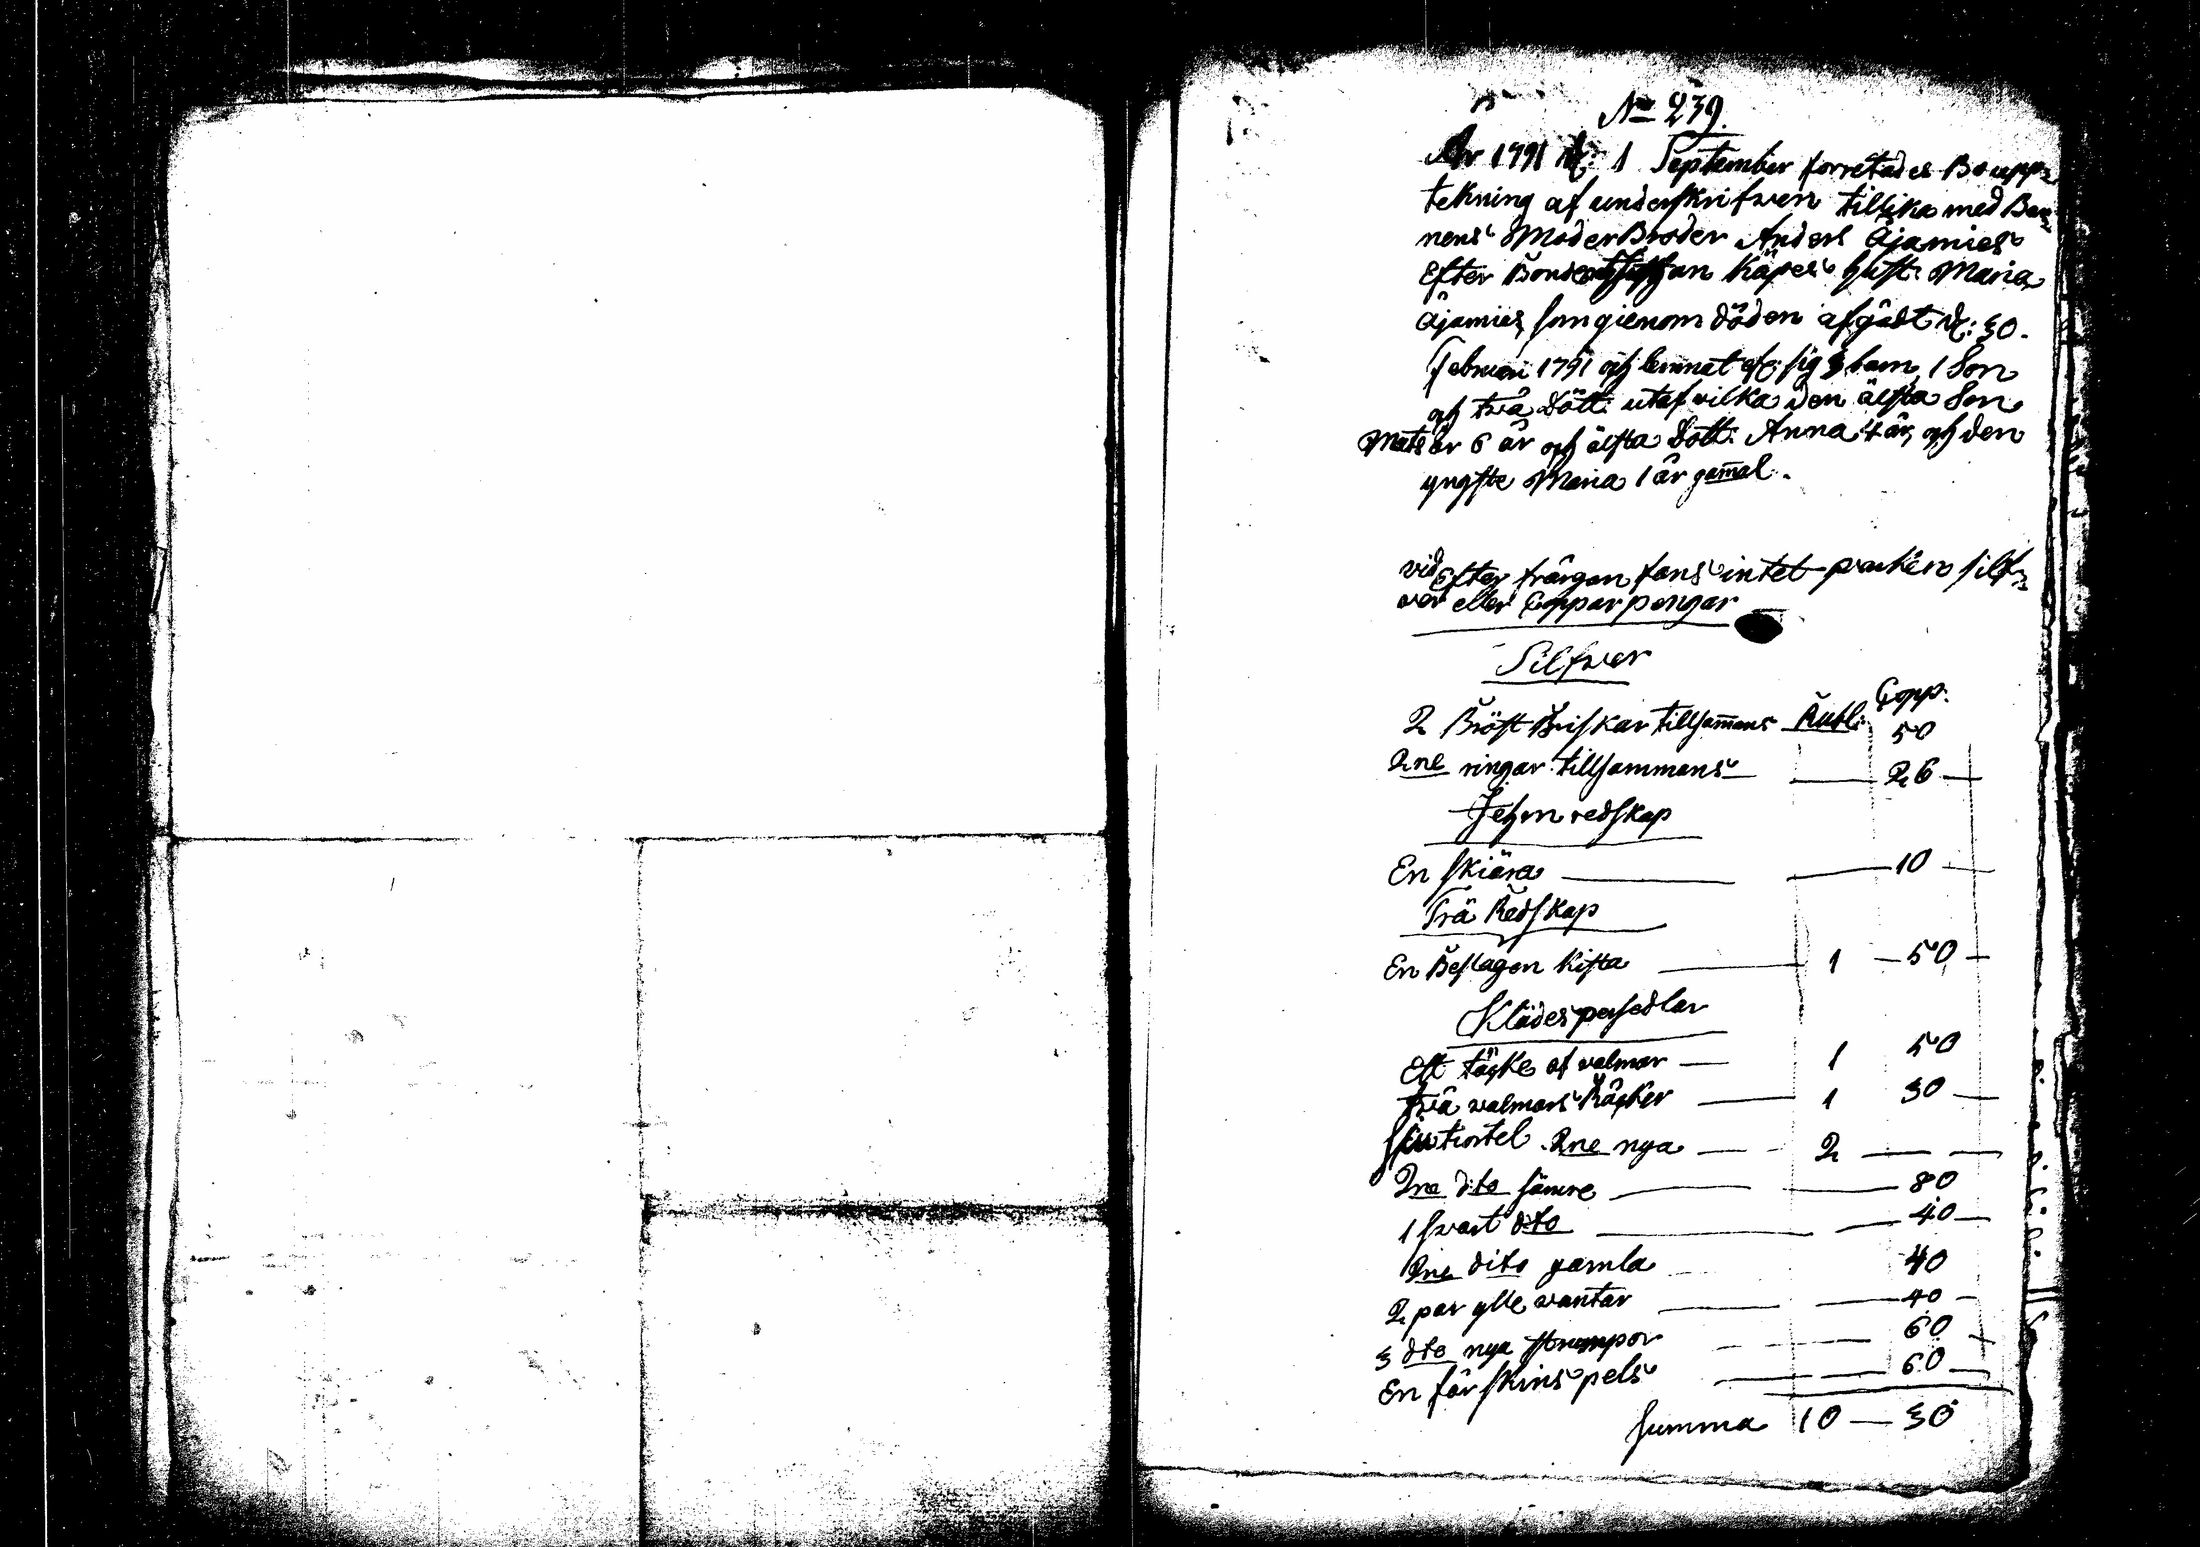 No 239.
År 1791 d: 1 September forretades Boupp=
tekning af underskrifven tillika med Bar=
nens Moder Broder Anders Äjamies
Efter Bonden Käpes hust: Maria
Äjamies som gienom döden afgådt d: 30.
Februari 1791 och lemnat eft: sig 3 barn, 1 Son
och två Dött: utaf vilka den älsta Son
Mats är 6 år och älsta Dott: Anna 4 år, och den
yngste Maria 1 år gam̄al.
vid Efter frårgan fans intet silf=
ver eller Coppar pengar
Silfwer
Rubl: Copp:
2 Bröst Briskar tillsam̄ans 50
2ne ringar tillsammans 26
Jehrn redskap
En skiära 10
Trä Redskap
En Beslagen kista 1 50
Klädes persedlar
Ett täcke af valmar 1 50
två valmars Råcker 1 30
2ne nya 2
2ne dito sämre 80
1 svart dito 40
2ne dito gamla 40
2 par ylle vantar 40
3 dto nya strumpor 60
En får skins pels 60
Summa 10 — 30